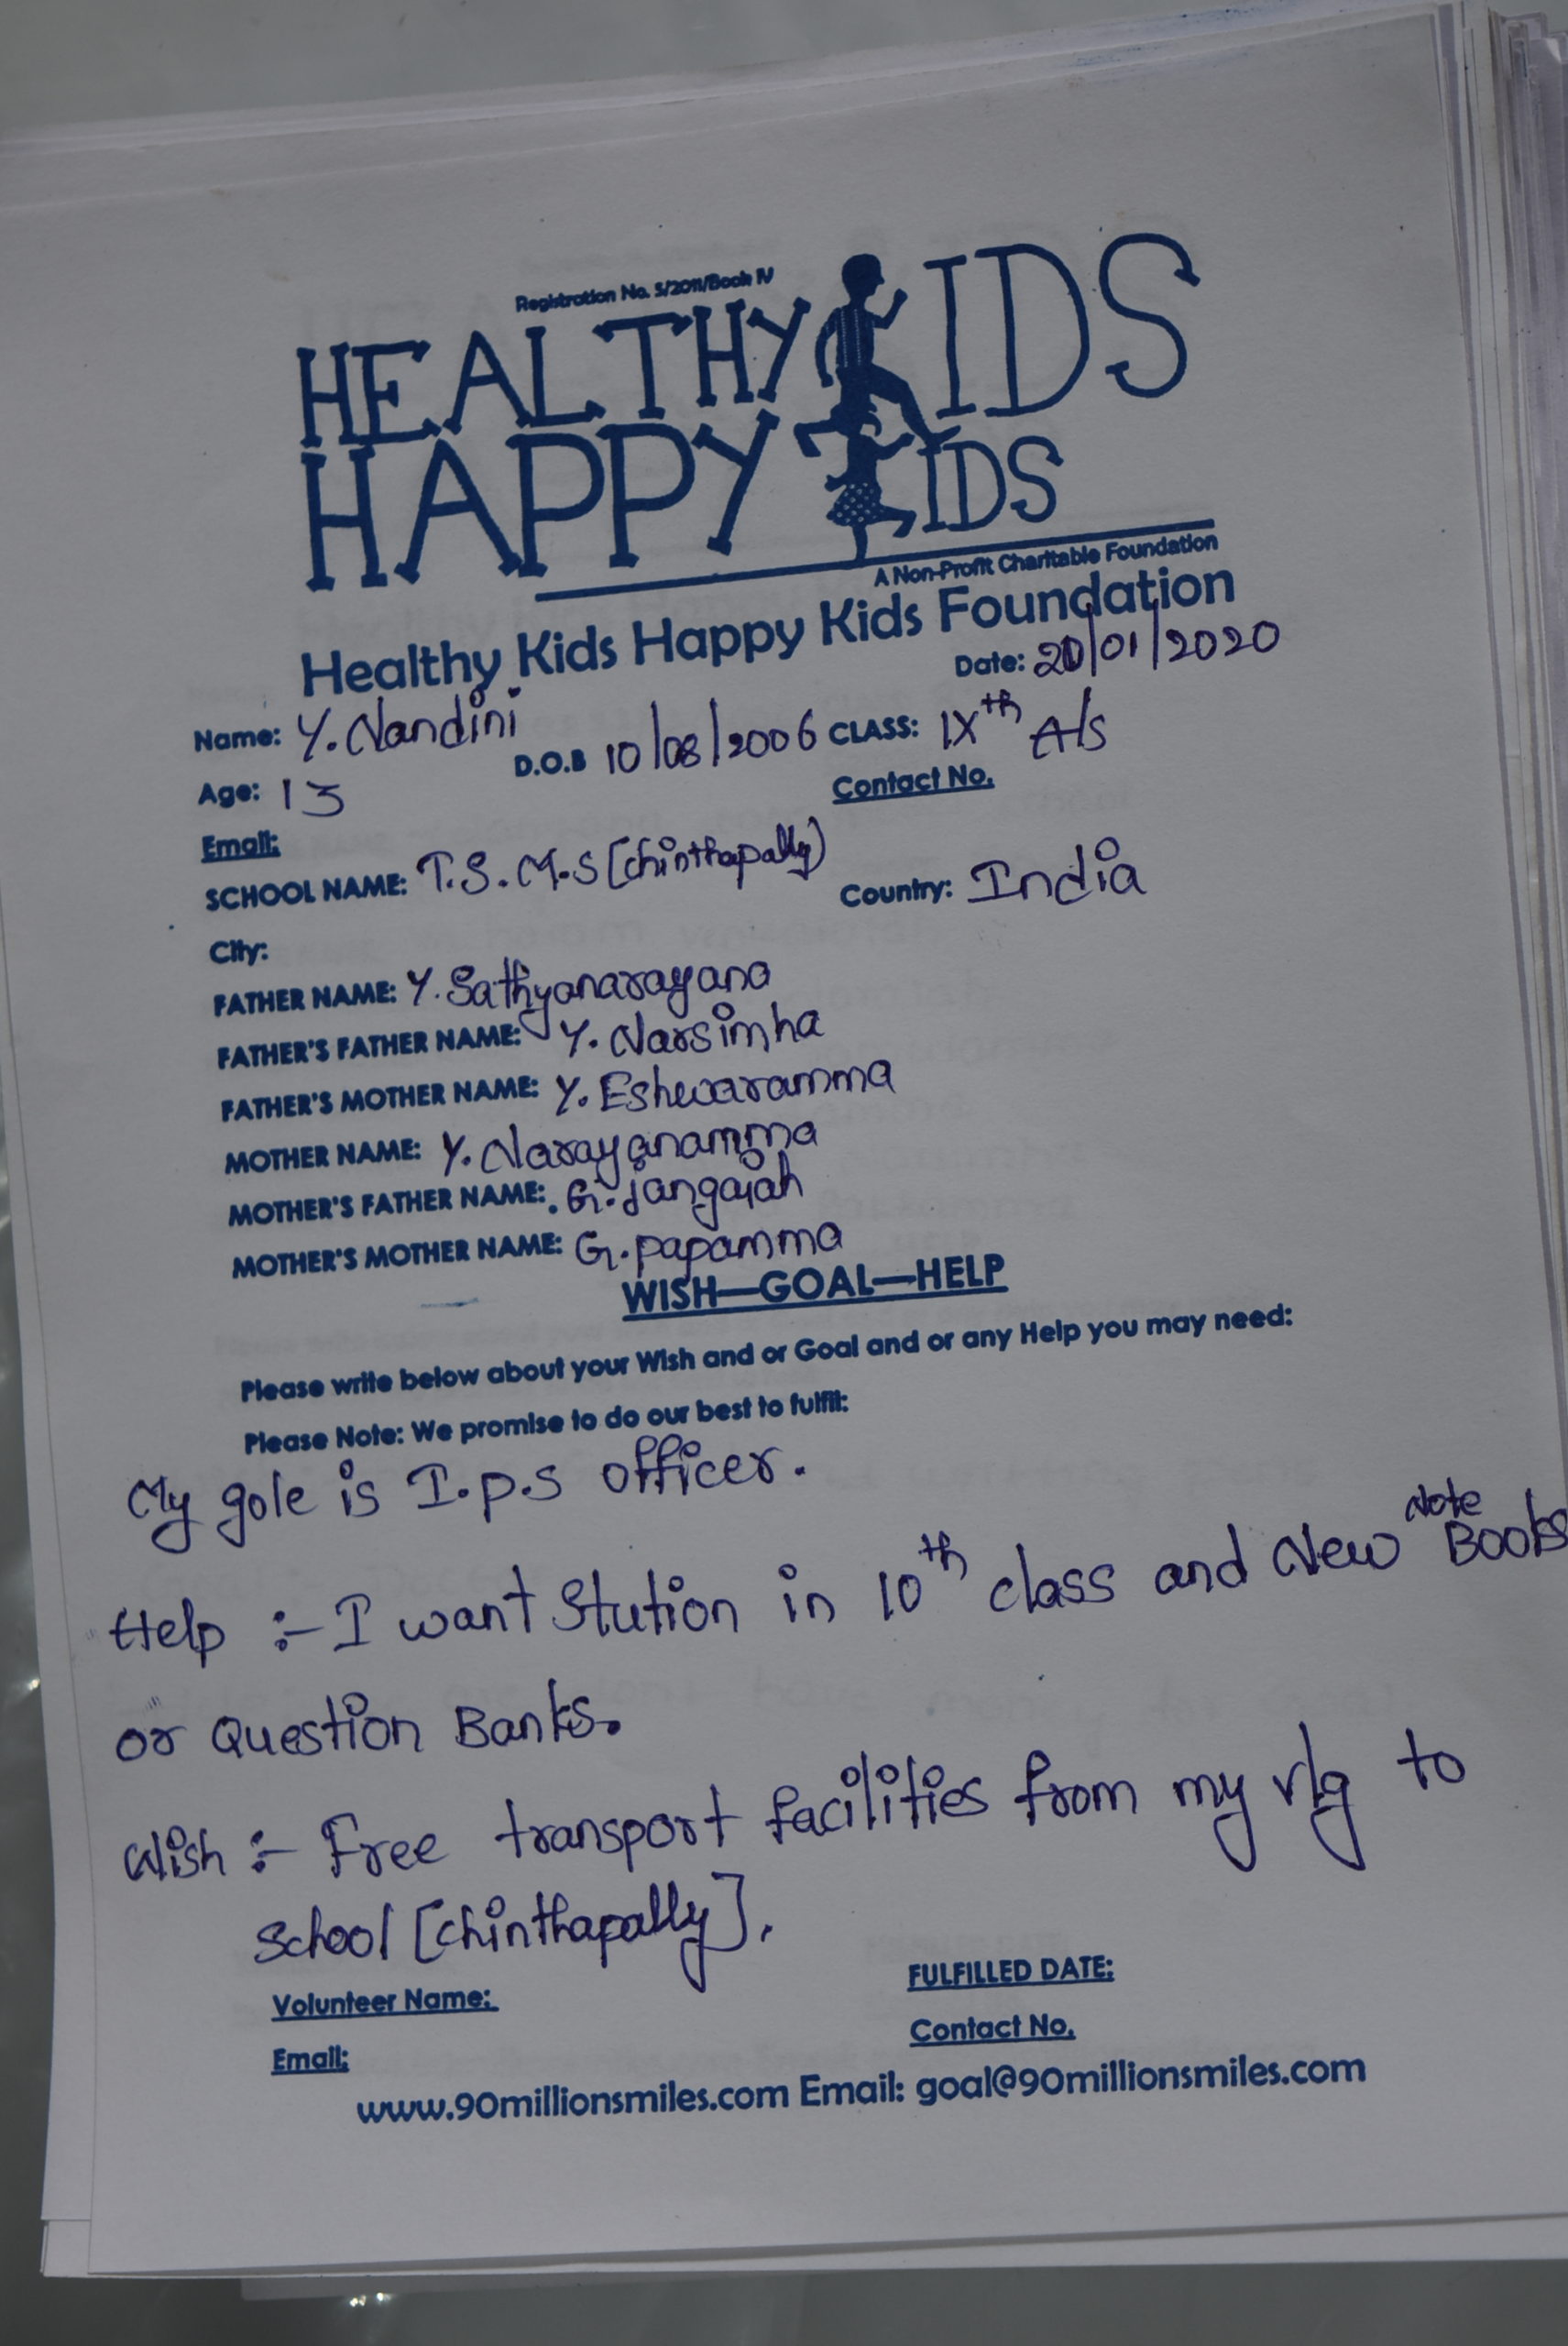 Registration No. 5/2011/Book IV
HEALTHY KIDS
HAPPY KIDS
A Non-Profit Charitable Foundation
Healthy Kids Happy Kids Foundation
Date: 20/01/2020
Name: Y. Nandini D.O.B 10/08/2006 CLASS: IXth A/s
Age: 13 Contact No.
Email:
SCHOOL NAME: T.S.M.S [chinthapally) Country: India
City:
FATHER NAME: Y. Sathyanarayana
FATHER'S FATHER NAME: Y. Narsimha
FATHER'S MOTHER NAME: Y. Eshwaramma
MOTHER NAME: Y. Narayanamma
MOTHER'S FATHER NAME: G. jangaiah
MOTHER'S MOTHER NAME: G. papamma
WISH—GOAL—HELP
Please write below about your Wish and or Goal and or any Help you may need:
Please Note: We promise to do our best to fulfil:
My gole is I.p.s officer.
Help :- I want Stution in 10th class and New Note Books
or Question Banks.
Wish :- Free transport facilities from my vlg to
school [chinthapally].
Volunteer Name: FULFILLED DATE:
Email: Contact No.
www.90millionsmiles.com Email: goal@90millionsmiles.com